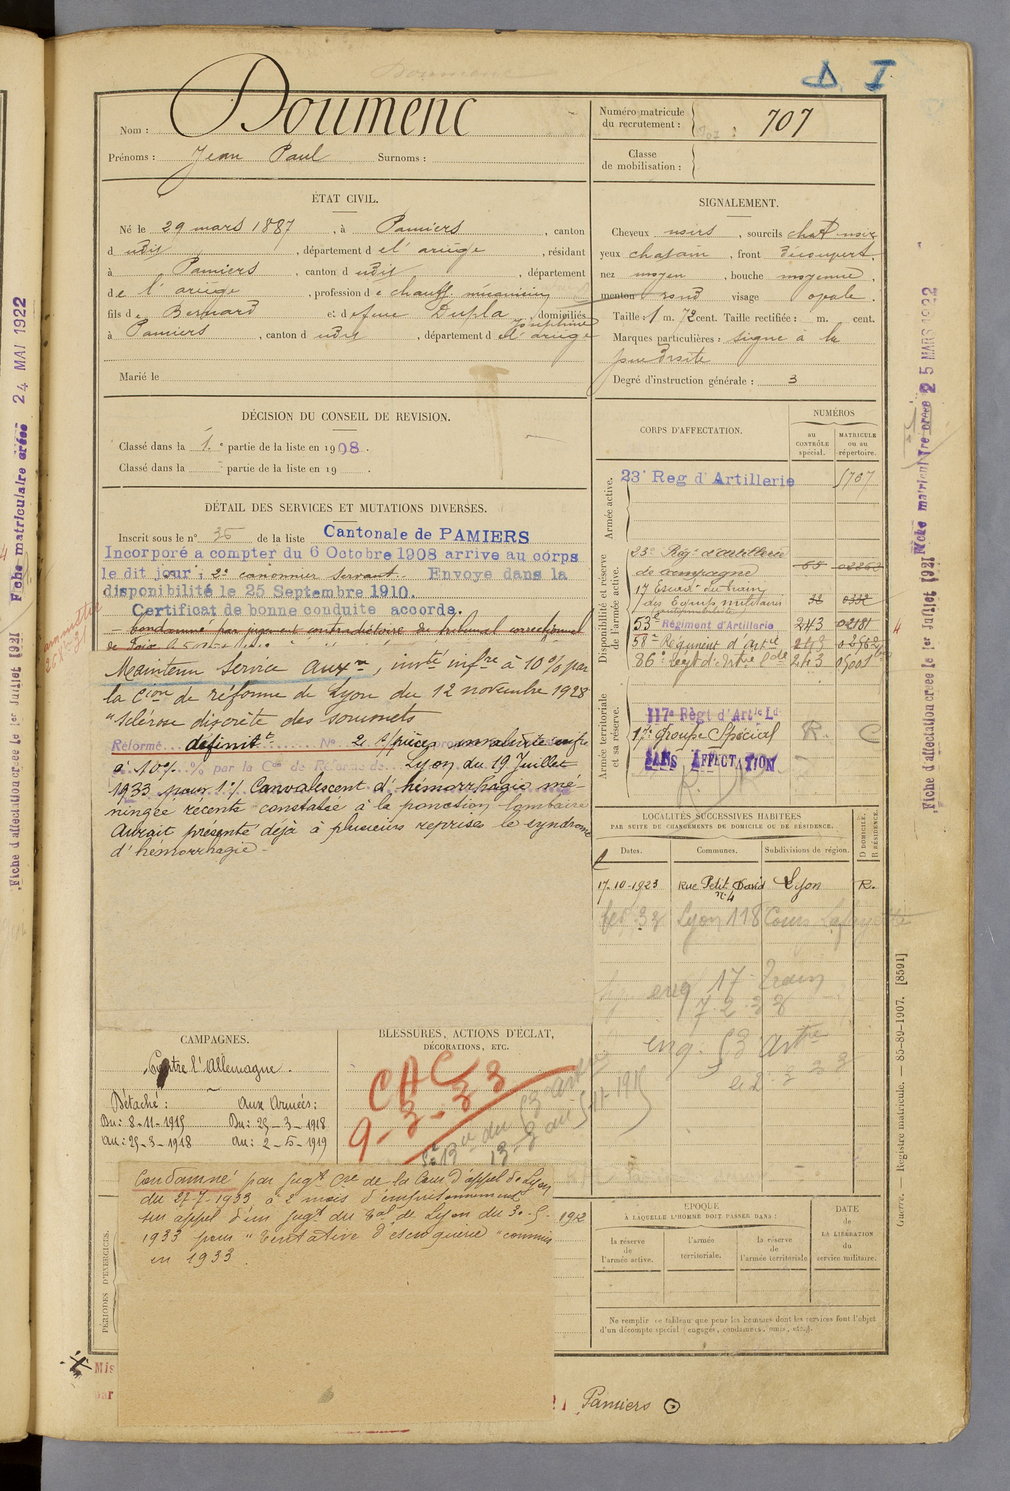 D. I
Nom : Doumenc
Prénoms : Jean Paul Surnoms :
Numéro matricule du recrutement : 707
Classe de mobilisation :
ÉTAT CIVIL.
Né le 29 mars 1887, à Pamiers, canton
d udit, département de l'ariège, résidant
à Pamiers, canton d udit, département
de l'ariège, profession de chauff. mécanicien
fils de Bernard et de feue Dupla Joséphine, domiciliés
à Pamiers, canton d udit, département de l'ariège
Marié le
SIGNALEMENT.
Cheveux noirs, sourcils chat noir
yeux chatain, front découvert.
nez moyen, bouche moyenne,
menton rond visage ovale.
Taille : 1 m. 72 cent. Taille rectifiée : m. cent.
Marques particulières : signe à la
joue droite
Degré d'instruction générale : 3
DÉCISION DU CONSEIL DE REVISION.
Classé dans la 1e partie de la liste en 1908.
Classé dans la partie de la liste en 19
DÉTAIL DES SERVICES ET MUTATIONS DIVERSES.
Inscrit sous le n° 36 de la liste Cantonale de PAMIERS
Incorporé a compter du 6 Octobre 1908 arrive au corps
le dit jour ; 2e canonnier servant. Envoye dans la
disponibilité le 25 Septembre 1910.
Certificat de bonne conduite accorde.
Condamné par jugement contradictoire du tribunal correctionnel
de Foix
Maintenu Service auxre, invté infre à 10 % par
la Cion de réforme de Lyon du 12 novembre 1928
"Sclérose discrète des sommets
Réformé définitt N° 2
à 10 % par la Con de Réforme de Lyon du 19 Juillet
1933 pour 1°/ Convalescent d'hémorrhagie mé-
ningée récente constatée à la ponction lombaire
Aurait présenté déjà à plusieurs reprises le syndrome
d'hémorrhagie -
CORPS D'AFFECTATION.
NUMÉROS
au CONTRÔLE spécial.
MATRICULE ou au répertoire.
Armée active.
23e Reg d'Artillerie 5707
Disponibilité et réserve de l'armée active.
23e Régt d'artillerie
de campagne
17 Escadr. du train
des Equip. militaires
53e Régiment d'Artillerie 243 02181
58e Régiment d'Artie 243
86e Regt d'Artie Lde 243
Armée territoriale et sa réserve.
117e Règt d'Artie Lde
17e Groupe Spécial R. C
SANS AFFECTATION
LOCALITÉS SUCCESSIVES HABITÉES
PAR SUITE DE CHANGEMENTS DE DOMICILE OU DE RÉSIDENCE.
Dates. Communes. Subdivisions de région. D DOMICILE. R RÉSIDENCE.
17-10-1923 Rue Petit David n°4 Lyon R.
fev 33 Lyon 118 Cours Lafayette
17 Train
7.2.33
CAMPAGNES.
Contre l'Allemagne.
Détaché : Aux Armées :
Du : 8-11-1915 Du : 25-3-1918
au : 25-3-1918 au : 2-5-1919
BLESSURES, ACTIONS D'ÉCLAT,
DÉCORATIONS, ETC.
CAC
9-3-33
Condamné par Jugt Cre de la Cour d'appel de Lyon
du 27-7-1933 à 2 mois d'emprisonnement
sur appel d'un Jugt du Tal de Lyon du 30-5-
1933 pour "Tentative d'escroquerie" commise
en 1933.
1912
PÉRIODES D'EXERCICES.
ÉPOQUE
À LAQUELLE L'HOMME DOIT PASSER DANS :
la réserve de l'armée active.
l'armée territoriale.
la réserve de l'armée territoriale
DATE de LA LIBÉRATION du service militaire.
Ne remplir ce tableau que pour les hommes dont les services font l'objet
d'un décompte spécial : engagés, condamnés, omis, etc.
Mis
par
21 Pamiers
Fiche matriculaire créée 24 MAI 1922
Fiche d'affectation créée le 1er Juillet 1921
Fiche matriculaire créée 25 MARS 1922
Fiche d'affectation créée le 1er Juillet 1921
Guerre. — Registre matricule. — 85-89-1907. [8591]